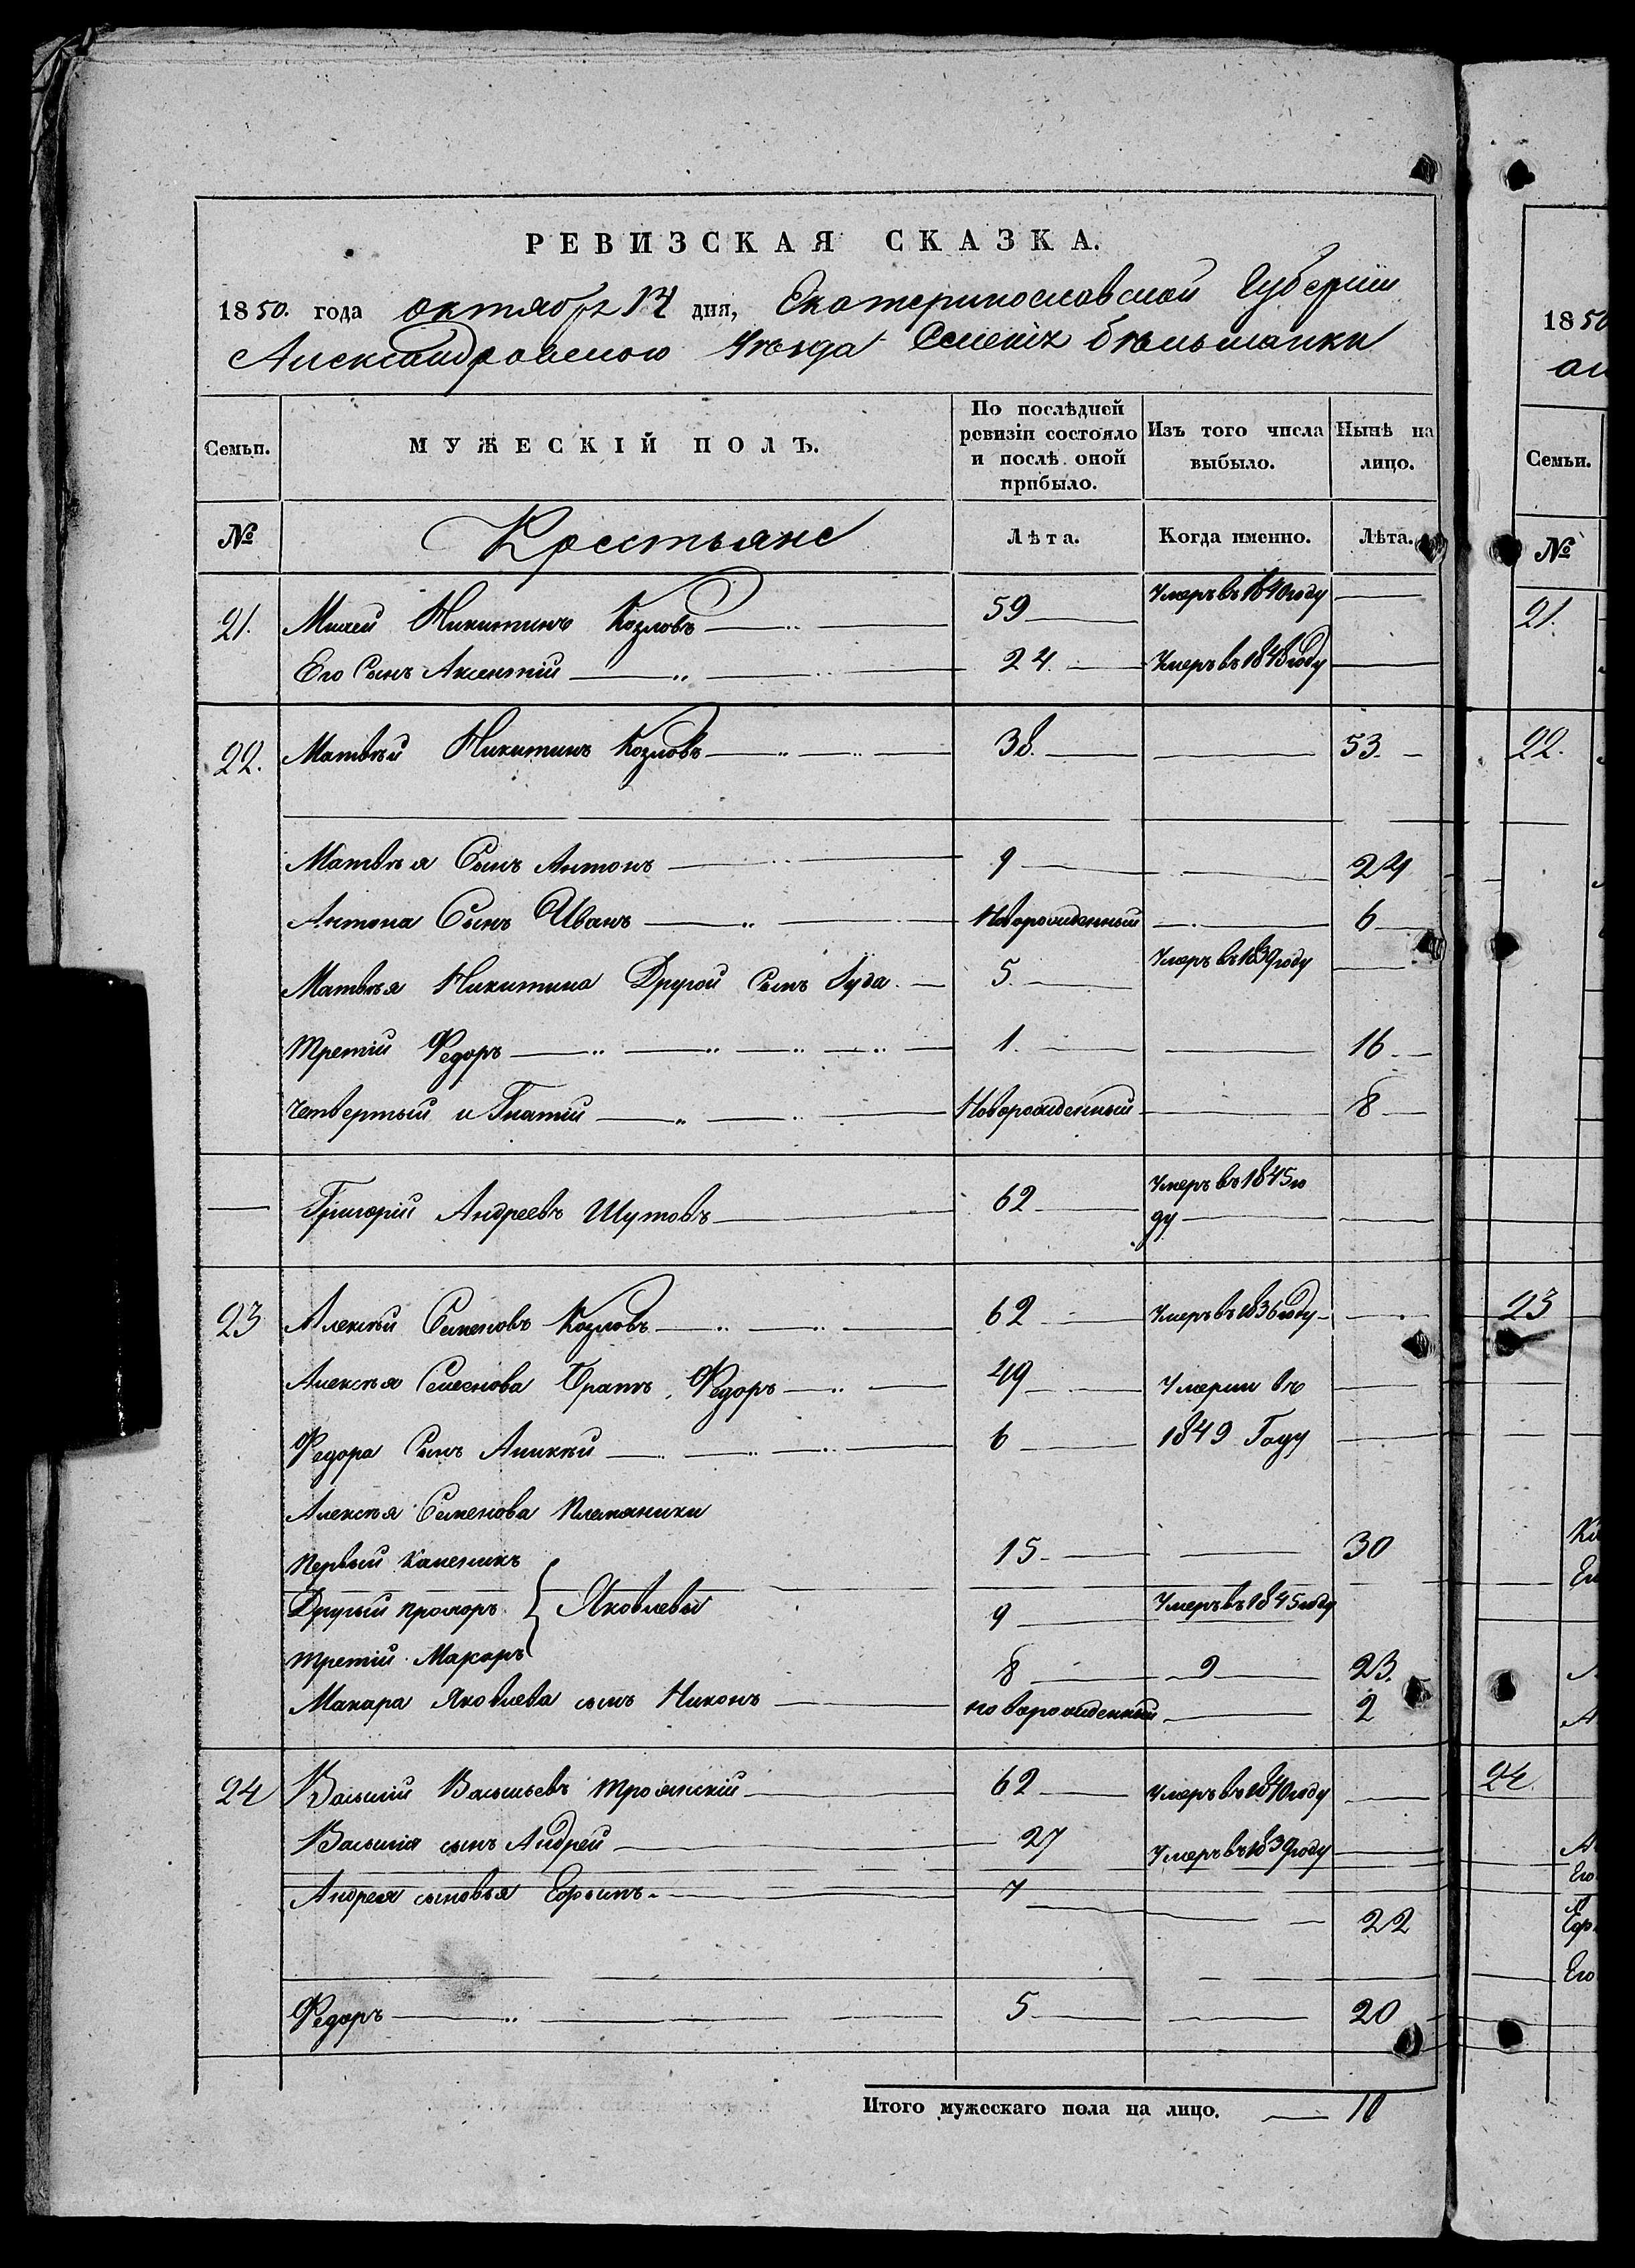 РЕВИЗСКАЯ СКАЗКА.
1850. года октября 14 дня, Екатеринославской Губерніи
Александровского Уѣзда Селенія бѣльманки
Семьи.
МУЖЕСКІЙ ПОЛЪ.
По послѣдней ревизіи состояло и послѣ оной прибыло.
Изъ того числа выбыло.
Нынѣ на лицо.
№ Крестьяне Лѣта. Когда именно. Лѣта.
21. Михей Никитинъ Козловъ 59 Умеръ въ 1840 году
Его Сынъ Аксентій 24. Умеръ въ 1848 году
22. Матвѣй Никитинъ Козловъ 38. 53.
Матвѣя Сынъ Антонъ 9 24
Антона Сынъ Иванъ Новорожденный 6
Матвѣя Никитина Другой Сынъ Іуда 5. Умеръ въ 1839 году
Третій Федоръ 1. 16
Четвертый иГнатій Новорожденный 8
Григорій Андреевъ Шутовъ 62 Умеръ въ 1845 го
ду
23 Алексѣй Семеновъ Козловъ 62 Умеръ въ 1836 году
Алексѣя Семенова Братъ, Федоръ 49 Умерли въ
Федора Сынъ Аникѣй 6 1849 Году
Алексѣя Семенова Племяники
Первый Каленикъ 15 30
Другый прохоръ Яковлевы 9 Умеръ въ 1845 году
Третій Макаръ 8 23.
Макара Яковлева сынъ Никонъ новорожденный 2
24 Василій Васильевъ Троянскій 62 Умеръ въ 1840 году
Василія сынъ Андрей 27 Умеръ въ 1839 году
Андрея сыновья Ефримъ 7
22
Федоръ 5 20
Итого мужескаго пола на лицо. 10
1850
Семьи.
№
21.
22.
23
24.
Его
Его